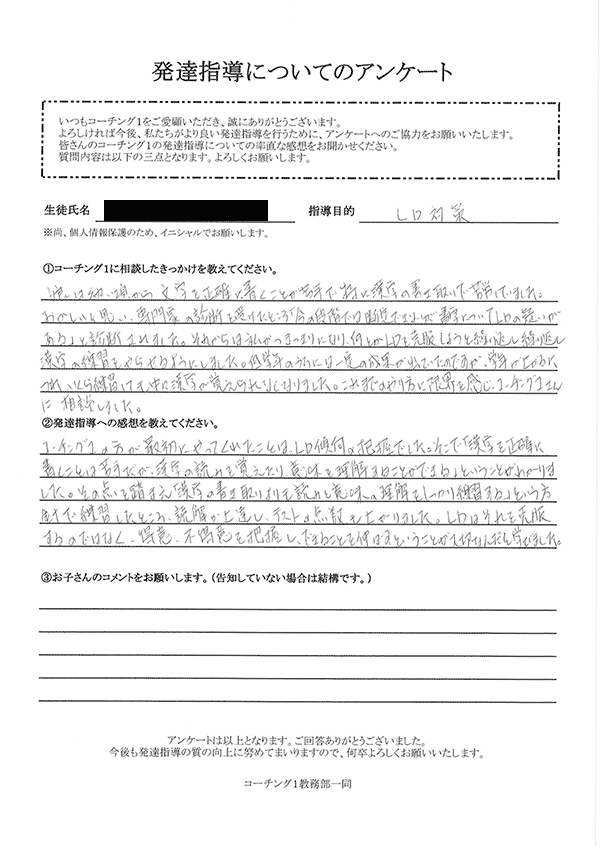 発達指導についてのアンケート
いつもコーチング1をご愛顧いただき、誠にありがとうございます。
よろしければ今後、私たちがより良い発達指導を行うために、アンケートへのご協力をお願いいたします。
皆さんのコーチング1の発達指導についての率直な感想をお聞かせください。
質問内容は以下の三点となります。よろしくお願いします。
生徒氏名 指導目的 LD対策
※尚、個人情報保護のため、イニシャルでお願いします。
①コーチング1に相談したきっかけを教えてください。
幼い頃から文字を正確に書くことが苦手で特に漢字の書き取りで苦労していました。
おかしいと思い、専門家の診断を受けたところ「今の段階では断定できないが書字についてLDの疑いが
ある」と診断されました。それからは私がつきっきりになり、何とかLDを克服しようと繰り返し繰り返し
漢字の練習をやらせるようにしました。低学年のうちには一定の成果が出ていたのですが、学年が上がるに
つれ、いくら練習しても中々漢字が覚えられなくなりました。これまでのやり方に限界を感じ、コーチング1さん
に相談しました。
②発達指導への感想を教えてください。
コーチング1の方が最初にやってくれたことは、LD傾向の把握でした。そこで「漢字を正確に
書くことは苦手だが、漢字の読みを覚えたり、意味を理解することができる」ということがわかりま
した。その点を踏まえ「漢字の書き取りよりも読みと意味の理解をしっかり練習する」という方
針で練習したところ、読解が上達し、テストの点数も上がりました。LDはそれを克服
するのではなく、得意、不得意を把握し、できることを伸ばすということが大切なんだと学びました。
③お子さんのコメントをお願いします。（告知していない場合は結構です。）
アンケートは以上となります。ご回答ありがとうございました。
今後も発達指導の質の向上に努めてまいりますので、何卒よろしくお願いいたします。
コーチング1教務部一同